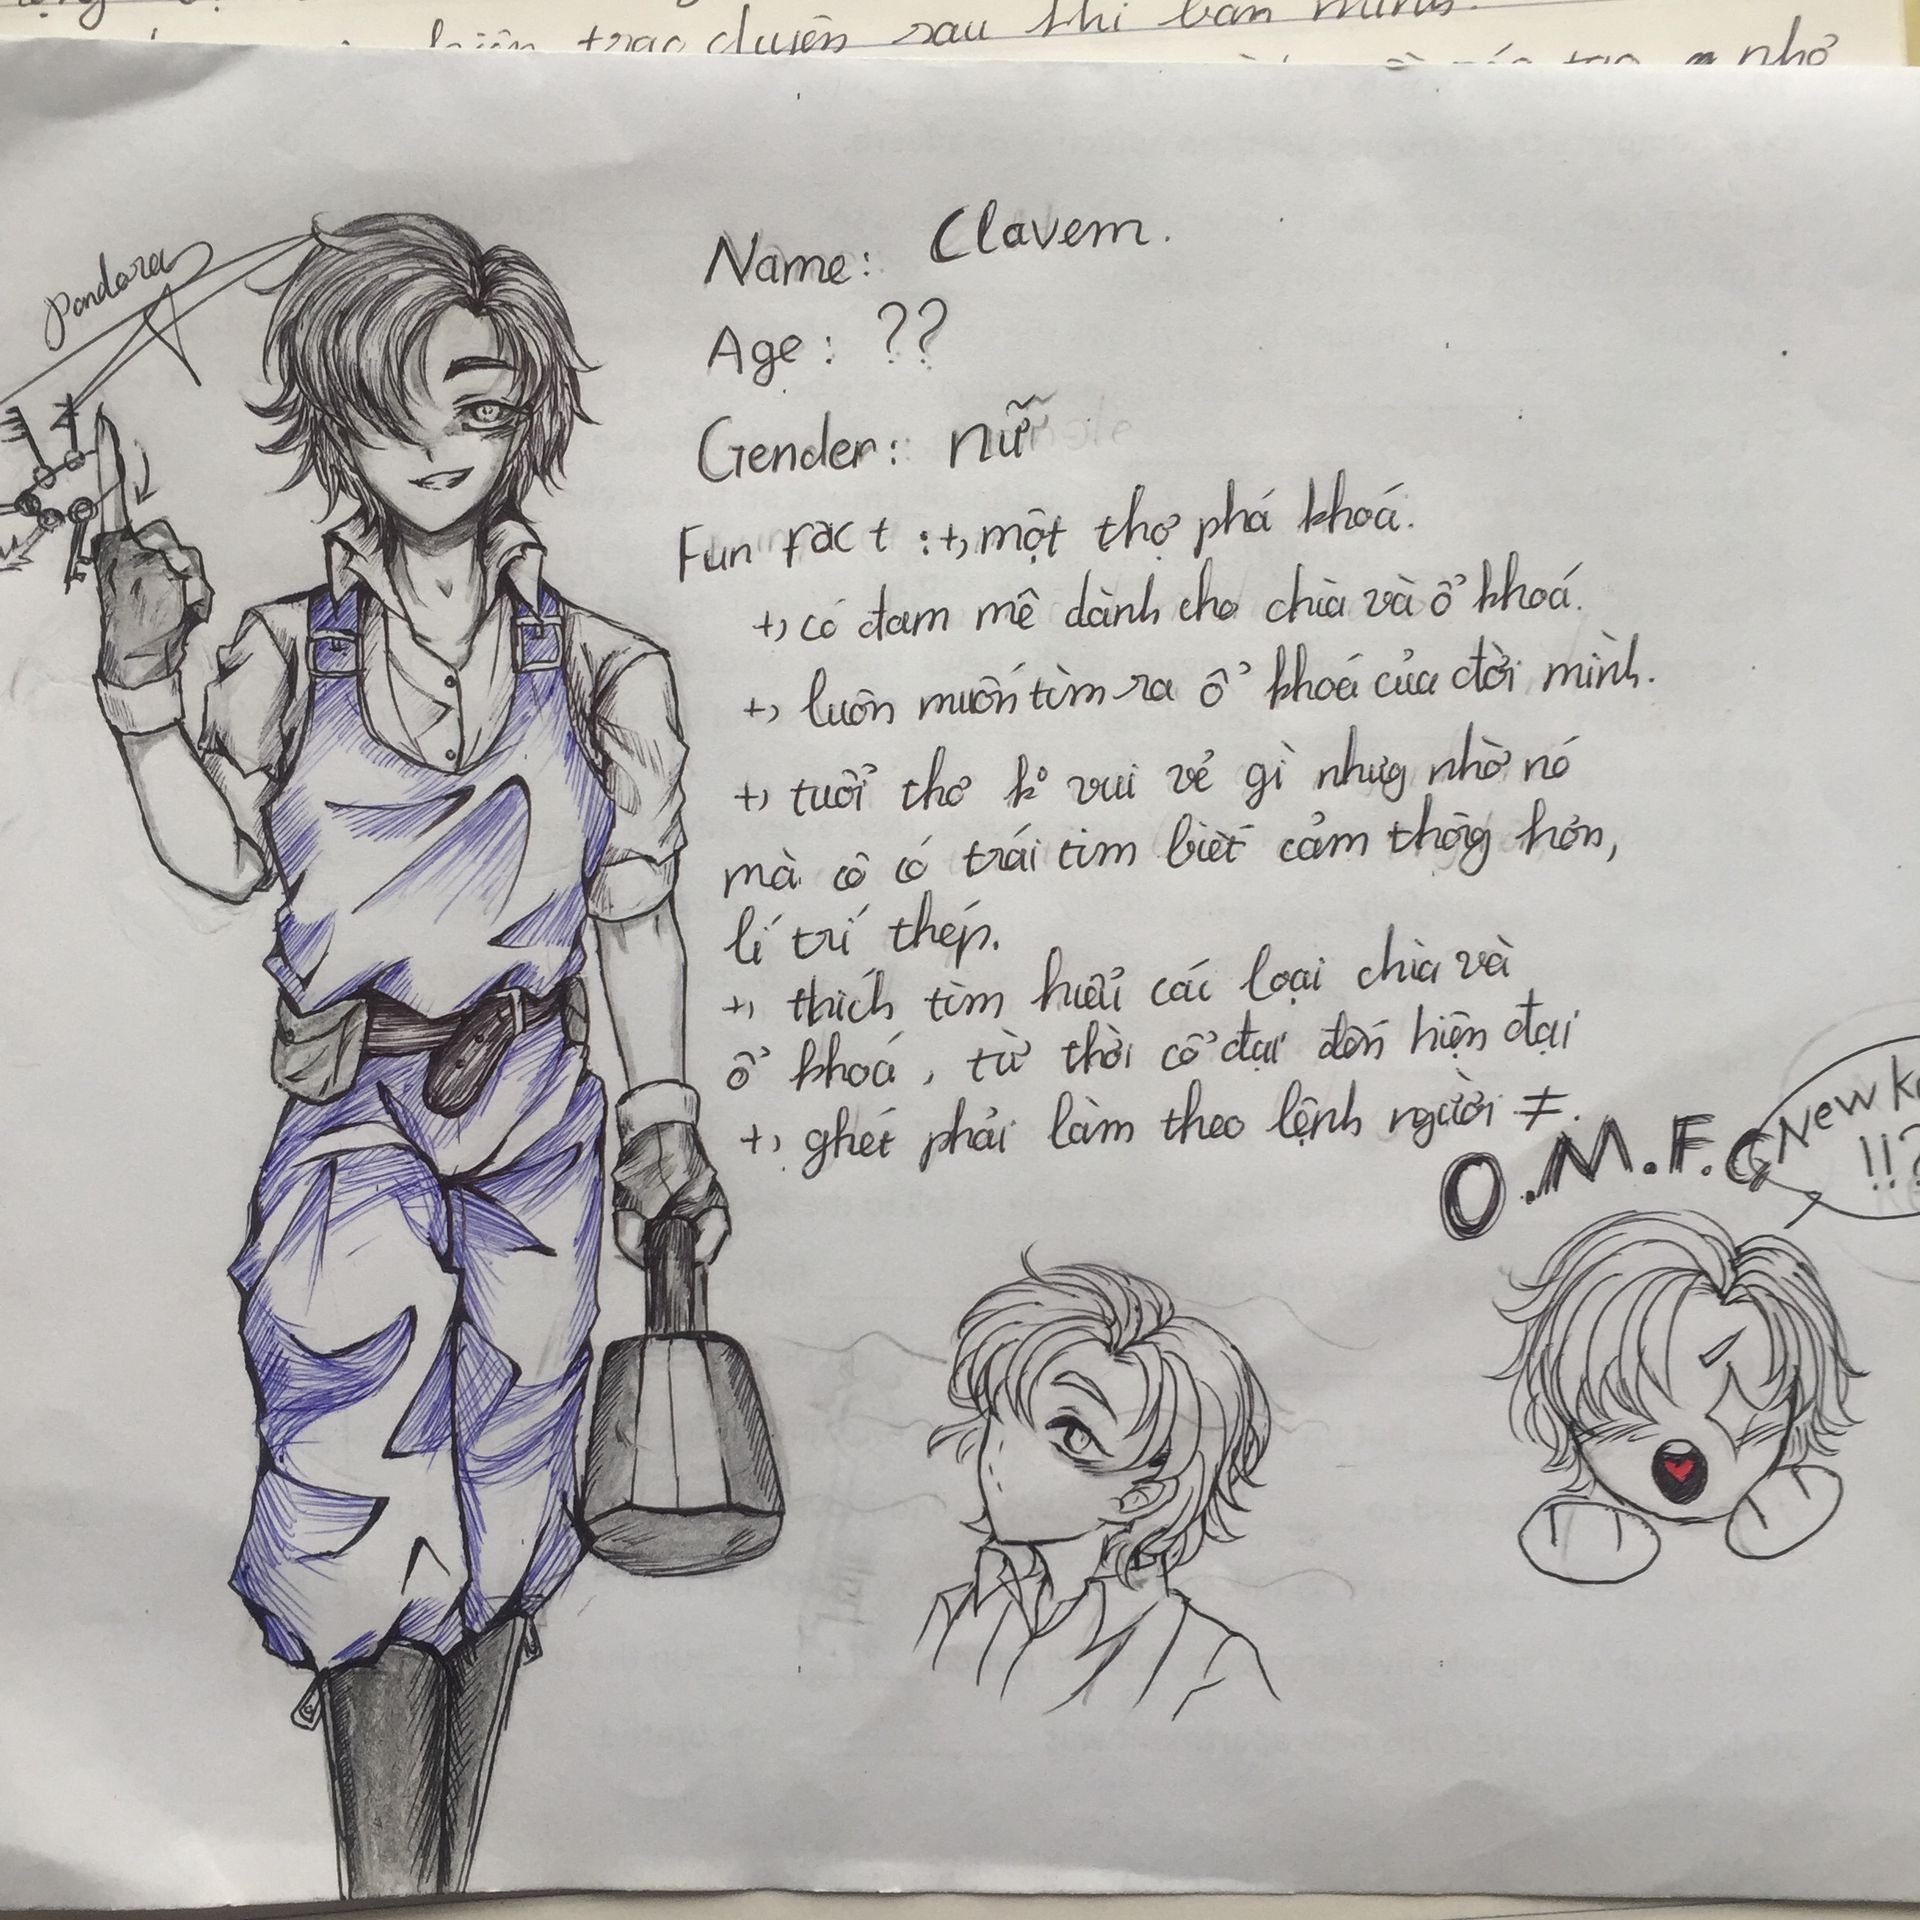 sau khi bán mình.
trao duyên
nhỏ
Pandora
Name: Clavem.
Age: ??
Gender: nữ
Fun fact: +, một thợ phá khoá.
+, có đam mê dành cho chìa và ổ khoá.
+, luôn muốn tìm ra ổ khoá của đời mình.
+, tuổi thơ ko vui vẻ gì nhưg nhờ nó
mà cô có trái tim biết cảm thôg hơn,
lí trí thép.
+, thích tìm hiểu các loại chìa và
ổ khoá, từ thời cổ đại đến hiện đại
+, ghét phải làm theo lệnh người ≠.
O.M.F.G
New
!!?